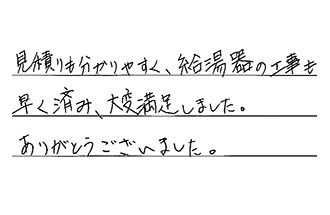 見積りも分かりやすく、給湯器の工事も
早く済み、大変満足しました。
ありがとうございました。